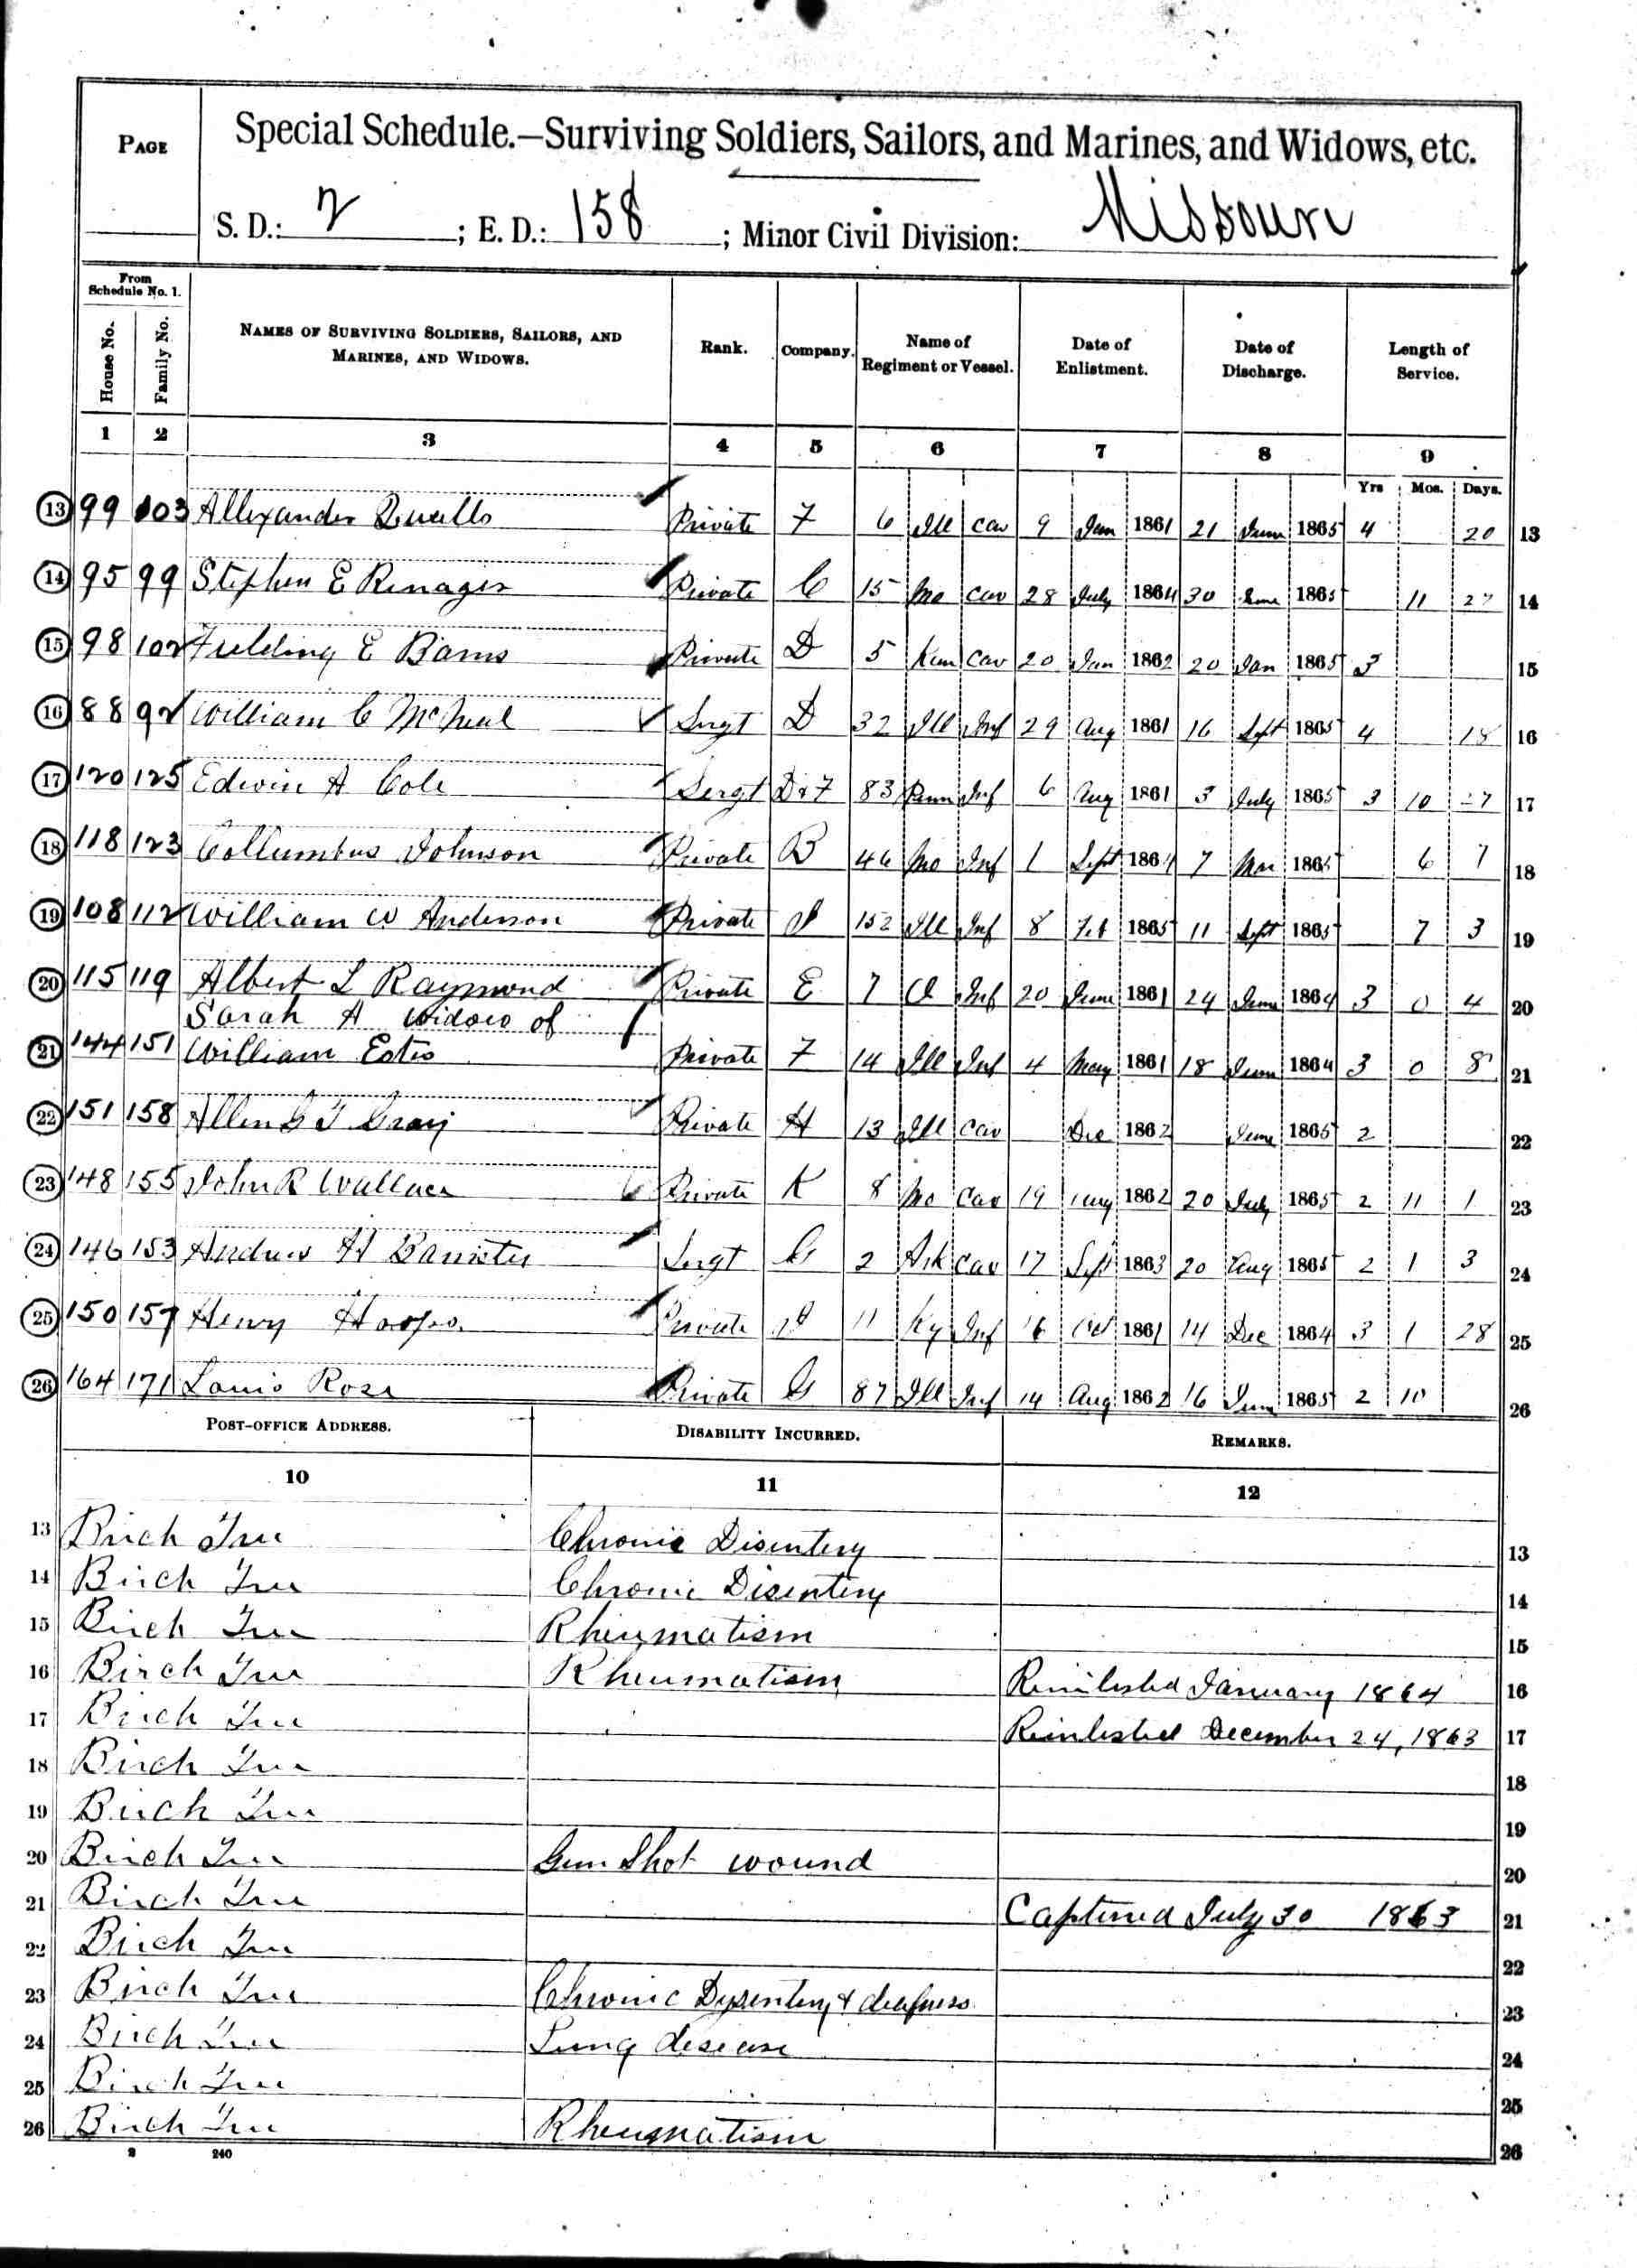 PAGE
Special Schedule.—Surviving Soldiers, Sailors, and Marines, and Widows, etc.
S. D.: 2 ; E. D.: 158 ; Minor Civil Division: Missouri
From Schedule No. 1.
House No. Family No. NAMES OF SURVIVING SOLDIERS, SAILORS, AND MARINES, AND WIDOWS. Rank. Company. Name of Regiment or Vessel. Date of Enlistment. Date of Discharge. Length of Service.
1 2 3 4 5 6 7 8 9
Yrs Mos. Days.
13 99 103 Allexander Qualls Private F 6 Ill cav 9 Jan 1861 21 June 1865 4 20 13
14 95 99 Stephen E Private C 15 Mo cav 28 July 1864 30 June 1865 11 14
15 98 102 Fielding E Private D 5 Ken cav 20 Jan 1862 20 Jan 1865 3 15
16 88 92 William C McNeal Sergt D 32 Ill Inf 29 Aug 1861 16 Sept 1865 4 18 16
17 120 125 Edwin A Cole Sergt D & F 83 Penn Inf 6 Aug 1861 3 July 1865 3 10 27 17
18 118 123 Collumbus Johnson Private B 46 Mo Inf 1 Sept 1864 7 Mar 1865 6 7 18
19 108 112 William W Anderson Private I 152 Ill Inf 8 Feb 1865 11 Sept 1865 7 3 19
20 115 119 Albert L Raymond Private E 7 O Inf 20 June 1861 24 June 1864 3 0 4 20
Sarah A widow of
21 144 151 William Estes Private F 14 Ill Inf 4 May 1861 18 June 1864 3 0 8 21
22 151 158 Allen G T Gray Private H 13 Ill cav Dec 1862 June 1865 2 22
23 148 155 John R Wallace Private K 8 Mo Cav 19 Aug 1862 20 July 1865 2 11 1 23
24 146 153 Andrew H Banister Sergt G 2 Ark cav 17 Sept 1863 20 Aug 1865 2 1 3 24
25 150 157 Henry Private I 11 Ky Inf 16 Oct 1861 14 Dec 1864 3 1 28 25
26 164 171 Louis Rose Private G 87 Ill Inf 14 Aug 1862 16 June 1865 2 10 26
POST-OFFICE ADDRESS. DISABILITY INCURRED. REMARKS.
10 11 12
13 Birch Tree Chronic Disentery 13
14 Birch Tree Chronic Disentery 14
15 Birch Tree Rheumatism 15
16 Birch Tree Rheumatism Reinlisted January 1864 16
17 Birch Tree Reinlisted December 24, 1863 17
18 Birch Tree 18
19 Birch Tree 19
20 Birch Tree Gun Shot wound 20
21 Birch Tree Captured July 30 1863 21
22 Birch Tree 22
23 Birch Tree Chronic Dysentery & deafness 23
24 Birch Tree Lung disease 24
25 Birch Tree 25
26 Birch Tree Rheumatism 26
2 240